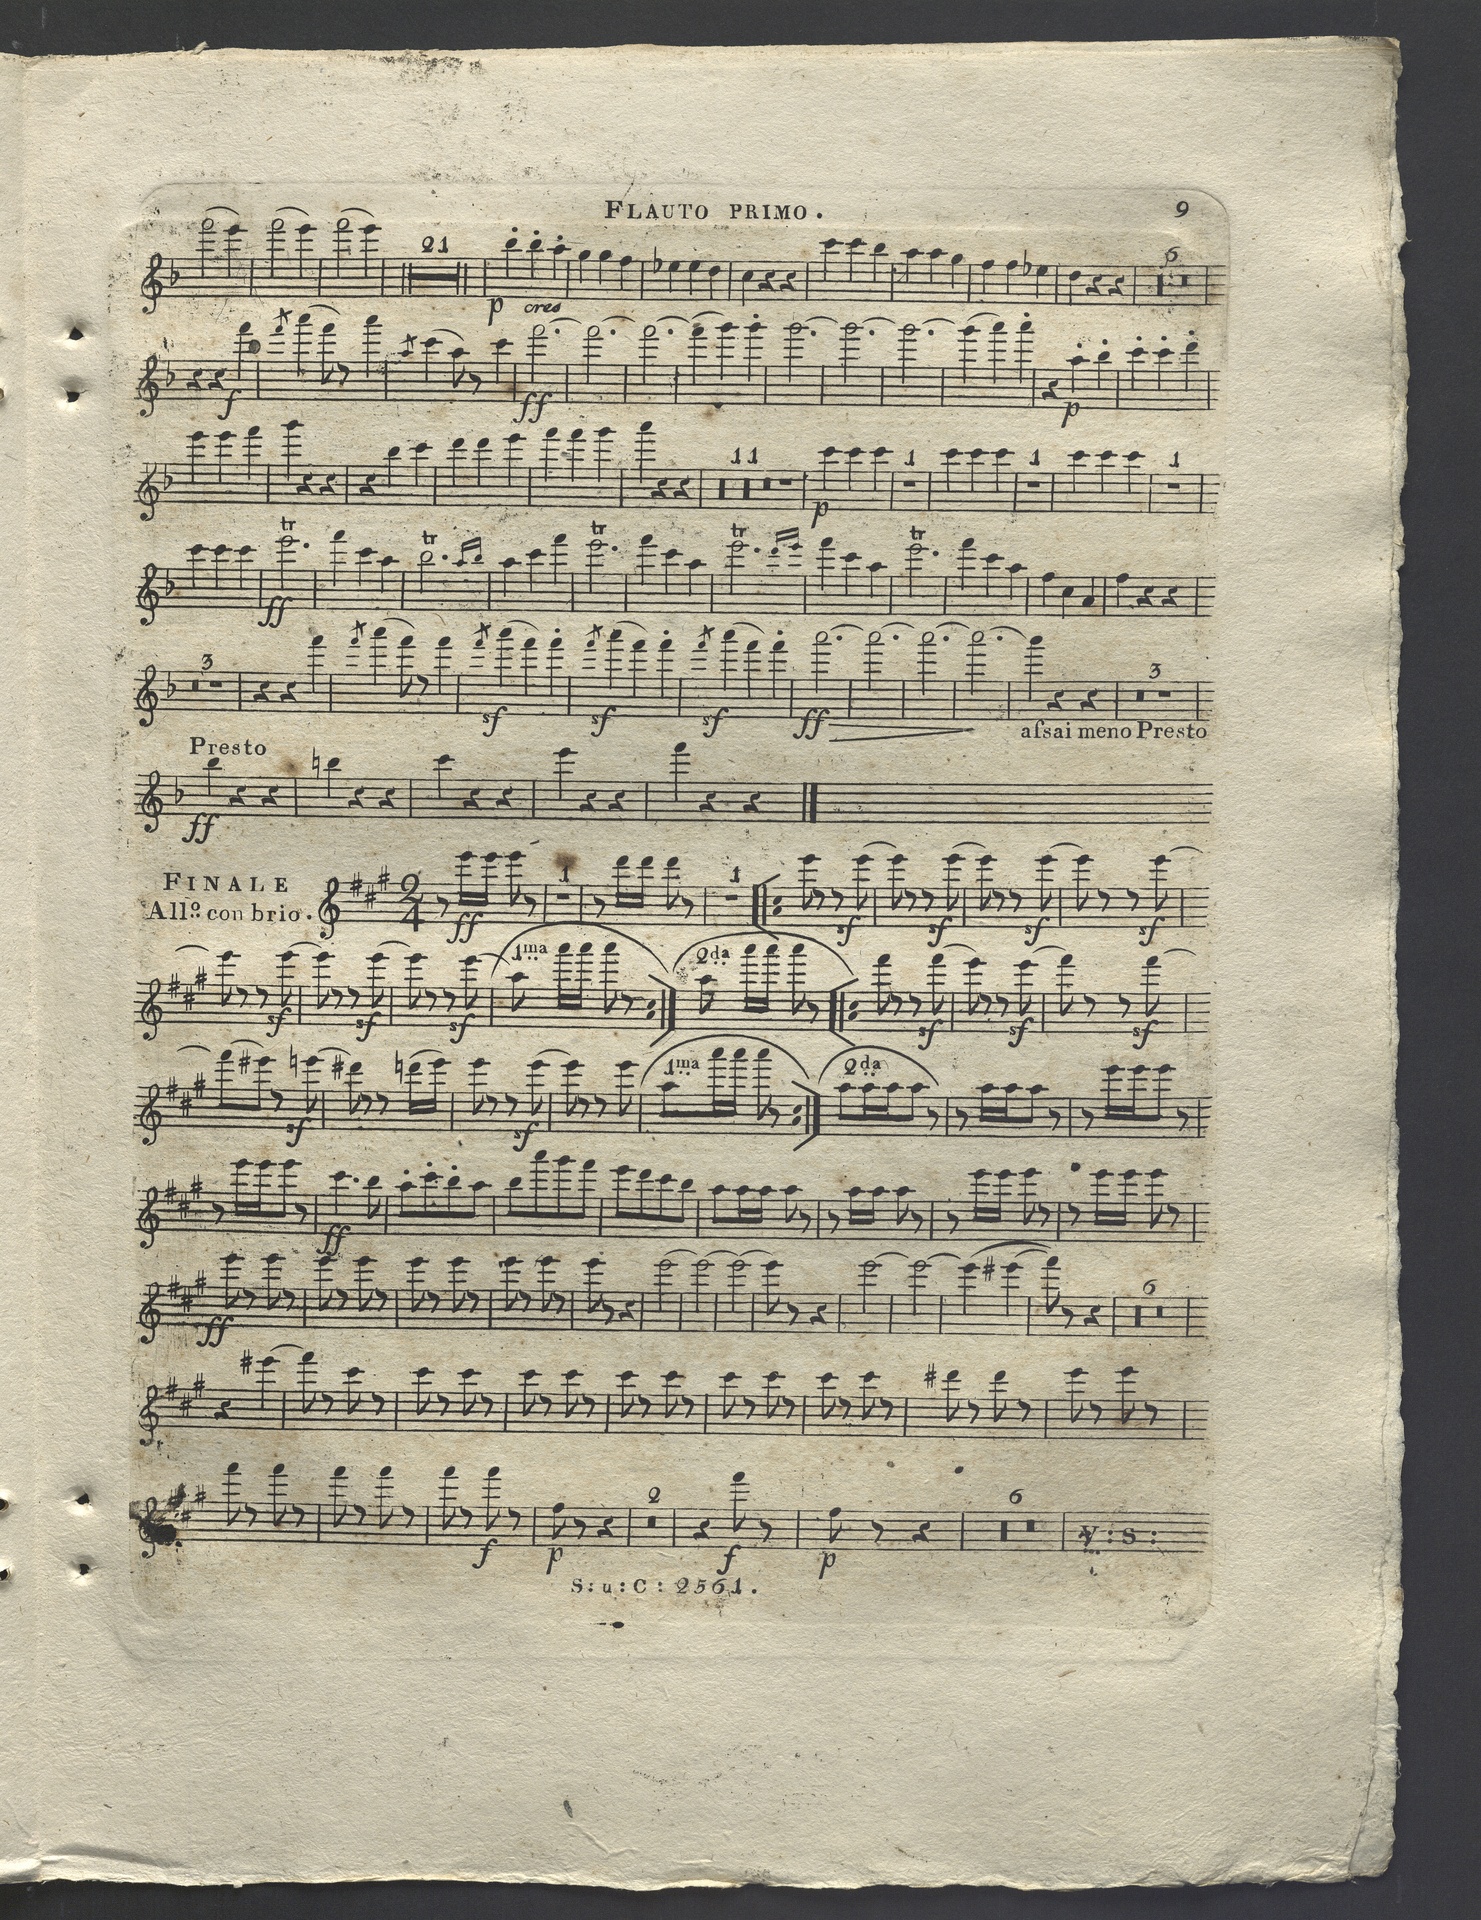 FLAUTO PRIMO. 9
21
p cres
6
f ff p
11 1 1 1
p
tr tr tr tr tr
ff
3 3
sf sf sf ff
afsai meno Presto
Presto
ff
FINALE
Allo: con brio.
2/4 1 1
ff sf sf sf sf
1ma 2da
sf sf sf sf sf sf
1ma 2da
sf sf
ff
6
ff
2 6
f p f p
V:S:
S:u:C: 2561.